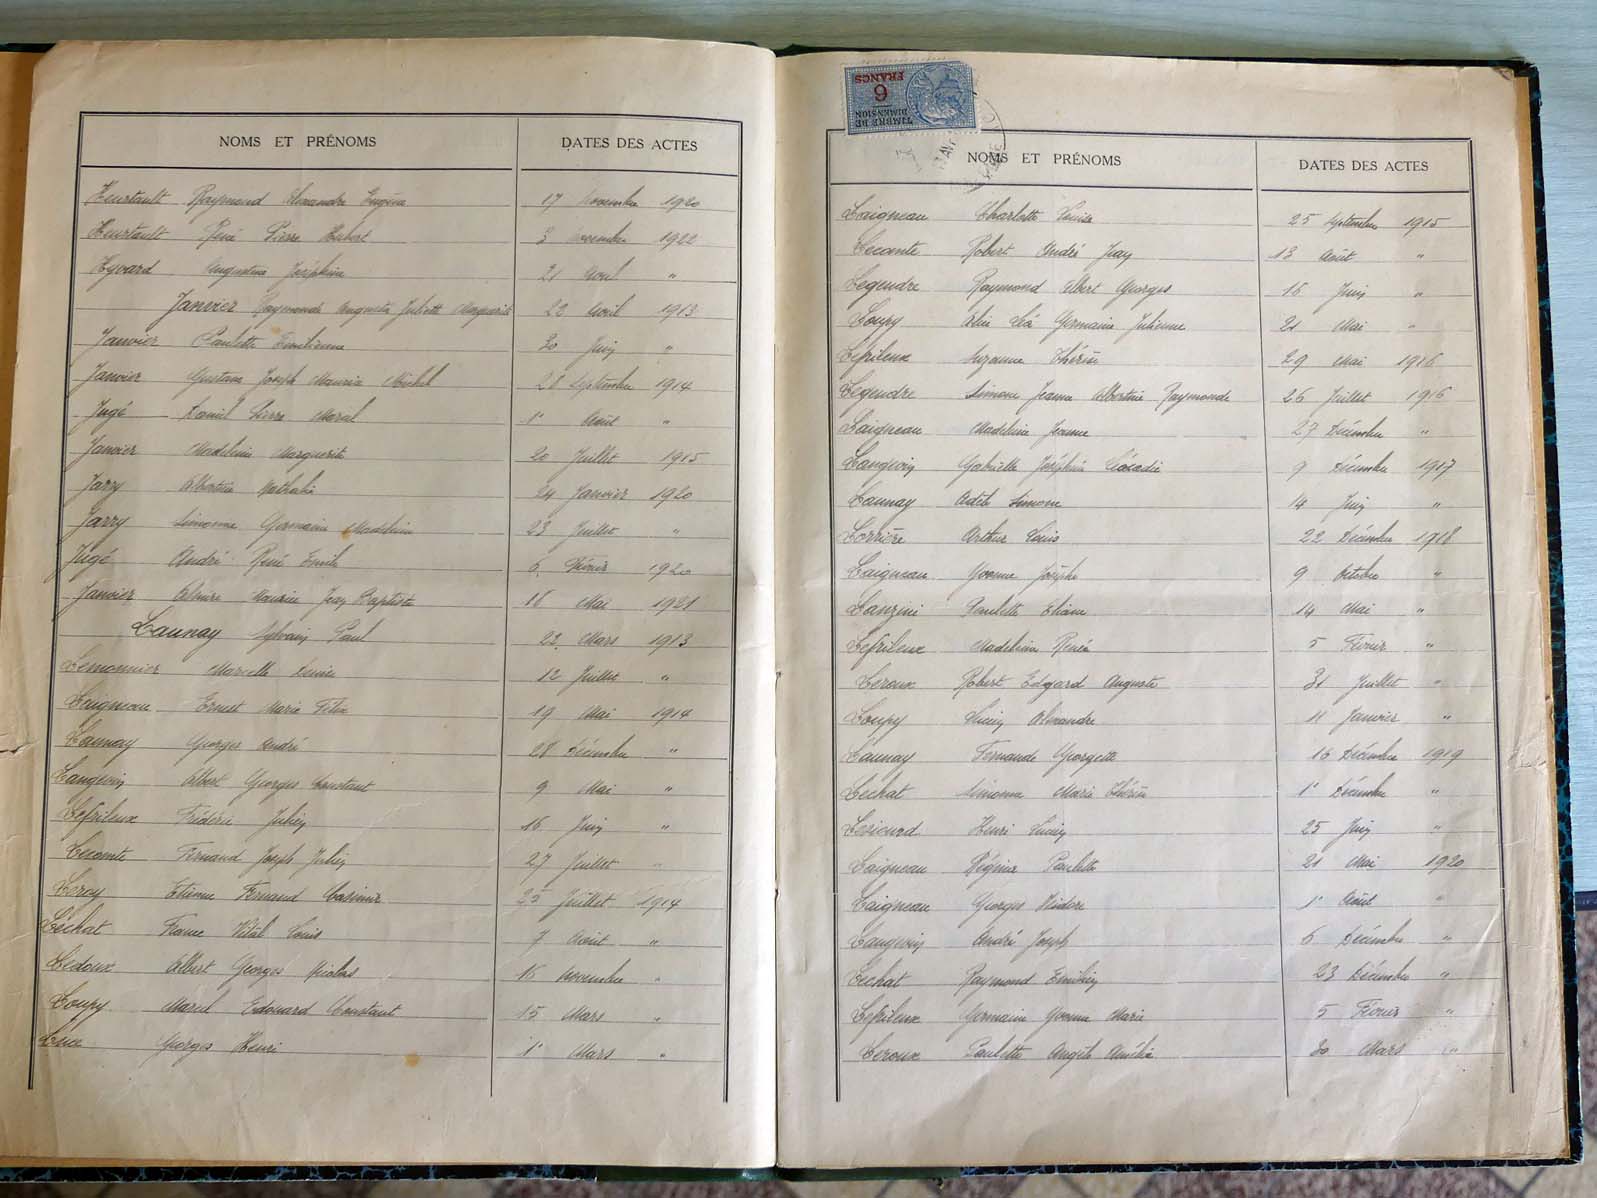 NOMS ET PRÉNOMS DATES DES ACTES
Heurtault Raymond Alexandre Eugène 17 Novembre 1920
Heurtault René Pierre Hubert 3 Novembre 1922
Hyvard Augustine Joséphine 21 Avril "
Janvier Raymonde Augusta Juliette Marguerite 22 Avril 1913
Janvier Paulette Emilienne 20 Juin "
Janvier Gustave Joseph Maurice Michel 28 Septembre 1914
Jugé Daniel Pierre Marcel 1er Août "
Janvier Madeleine Marguerite 20 Juillet 1915
Jarry Albertine Nathalie 24 Janvier 1920
Jarry Simonne Germaine Madeleine 23 Juillet "
Jugé André René Emile 6 Février 1920
Janvier Maurice Jean Baptiste 18 Mai 1921
Launay Sylvain Paul 22 Mars 1913
Lemonnier Marcelle Denise 12 Juillet "
Laigneau Ernest Marie Félix 19 Mai 1914
Launay Georges André 28 Décembre "
Langevin Albert Georges Constant 9 Mai "
Lefrileux Frédéric Julien 16 Juin "
Lecomte Fernand Joseph Julien 27 Juillet "
Leroy Etienne Fernand Casimir 25 Juillet 1914
Léchat France Vital Louis 7 Août "
Ledoux Albert Georges Nicolas 16 Novembre "
Loupy Marcel Edouard Constant 15 Mars "
Georges Henri 1er Mars "
TIMBRE DE DIMENSION
6 FRANCS
NOMS ET PRÉNOMS DATES DES ACTES
Laigneau Charlotte Louise 25 Septembre 1915
Lecomte Robert André Jean 18 Août "
Legendre Raymond Albert Georges 16 Juin "
Loupy Léa Germaine Julienne 21 Mai "
Lefrileux Suzanne Thérèse 29 Mai 1916
Legendre Simone Jeanne Albertine Raymonde 26 Juillet 1916
Laigneau Madeleine Jeanne 27 Décembre "
Langevin Gabrielle Joséphine Léocadie 9 Décembre 1917
Launay Adèle Simone 14 Juin "
Lorrière Arthur Louis 22 Décembre 1918
Laigneau Yvonne Josèphe 9 Octobre "
Lanzini Paulette Eliane 14 Mai "
Lefrileux Madeleine Renée 5 Février "
Leroux Robert Edgard Auguste 31 Juillet "
Loupy Lucien Alexandre 11 Janvier "
Launay Fernande Georgette 16 Décembre 1919
Lechat Simonne Marie Thérèse 1er Décembre "
Henri Lucien 25 Juin "
Laigneau Régina Paulette 21 Mai 1920
Laigneau Georges Isidore 1er Août "
Langevin André Joseph 6 Décembre "
Lechat Raymond Emilien 23 Décembre "
Lefrileux Germaine Yvonne Marie 5 Février "
Leroux Paulette Angèle Amélie 30 Mars "